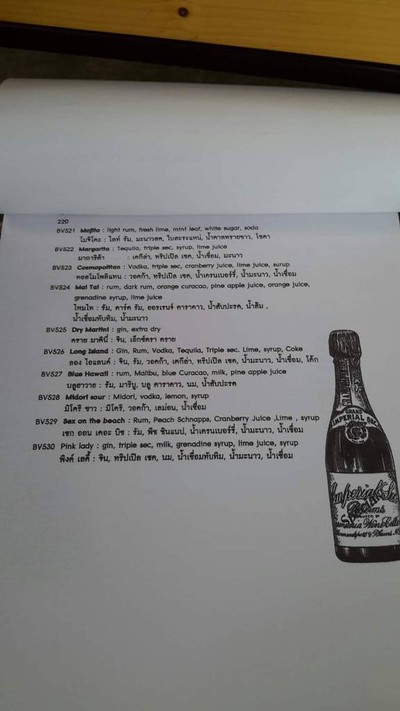 220
BV521 Mojito : light rum, fresh lime, mint leaf, white sugar, soda
โมจิโตะ : ไลท์ รัม, มะนาวสด, ใบสะระแหน่, น้ำตาลทรายขาว, โซดา
BV522 Margarita : Tequila, triple sec, syrup, lime juice
มาการิต้า : เตกีล่า, ทริปเปิล เซค, น้ำเชื่อม, มะนาว
BV523 Cosmopolitan : Vodka, triple sec, cranberry juice, lime juice, surup
คอสโมโพลิแทน : วอดก้า, ทริปเปิล เซค, น้ำแครนเบอร์รี่, น้ำมะนาว, น้ำเชื่อม
BV524 Mai Tai : rum, dark rum, orange curacao, pine apple juice, orange juice,
grenadine syrup, lime juice
ไหมไท : รัม, ดาร์ค รัม, ออรเรนจ์ คาราคาว, น้ำสับปะรด, น้ำส้ม ,
น้ำเชื่อมทับทิม, น้ำมะนาว
BV525 Dry Martini : gin, extra dry
ดราย มาตินี่ : จิน, เอ็กซ์ตรา ดราย
BV526 Long Island : Gin, Rum, Vodka, Tequila, Triple sec. Lime, syrup, Coke
ลอง ไอแลนด์ : จิน, รัม, วอดก้า, เตกีล่า, ทริปเปิ้ล เซค, น้ำมะนาว, น้ำเชื่อม, โค้ก
BV527 Blue Hawaii : rum, Malibu, blue Curacao, milk, pine apple juice
บลูฮาวาย : รัม, มาริบู, บลู คาราคาว, นม, น้ำสับปะรด
BV528 Midori sour : Midori, vodka, lemon, syrup
มิโดริ ซาว : มิโดริ, วอดก้า, เลม่อน, น้ำเชื่อม
BV529 Sex on the beach : Rum, Peach Schnapps, Cranberry Juice ,Lime , syrup
เซก ออน เดอะ บีช : รัม, พีช ชินแนป, น้ำแครนเบอร์รี่, น้ำมะนาว, น้ำเชื่อม
BV530 Pink lady : gin, triple sec, milk, grenadine syrup, lime juice, syrup
พิงค์ เลดี้ : จิน, ทริปเปิล เซค, นม, น้ำเชื่อมทับทิม, น้ำมะนาว, น้ำเชื่อม
GRAND
IMPERIAL SEC